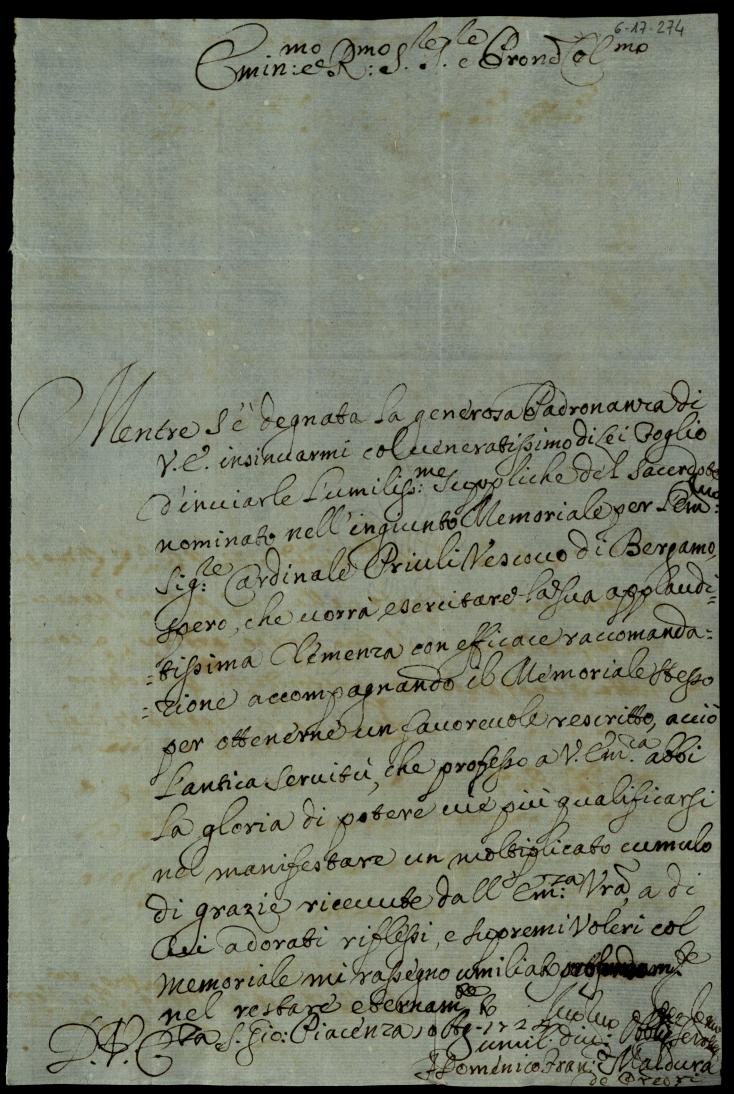 6-17-274
Emin:mo e R:mo S.le S.le e Pron Col.mo
Mentre s'è degnata la generosa Padronanza di
V.E. insinuarmi col veneratissimo di Lei Foglio
d'inviarle l'umiliss:me Suppliche del Sacerdote
nominato nell'ingiunto Memoriale per l'Em:mo
Sig:le Cardinale Priuli Vescovo di Bergamo,
spero, che vorrà esercitare la sua applaudi=
=tissima Clemenza con efficace raccomanda=
=zione accompagnando il Memoriale stesso
per ottenerne un favorevole rescritto, acciò
l'antica servitù, che professo a V. Em.za abbi
la gloria di potere vie più qualificarsi
nel manifestare un moltiplicato cumulo
di grazie ricevute dall'Em:za Vra, a di
Cui adorati riflessi, e supremi Voleri col
Memoriale mi rassegno umiliato
nel restare eternam.te
D. V. E.za S. Gio: Piacenza
Umil: div:
Domenico Fran: Maldura